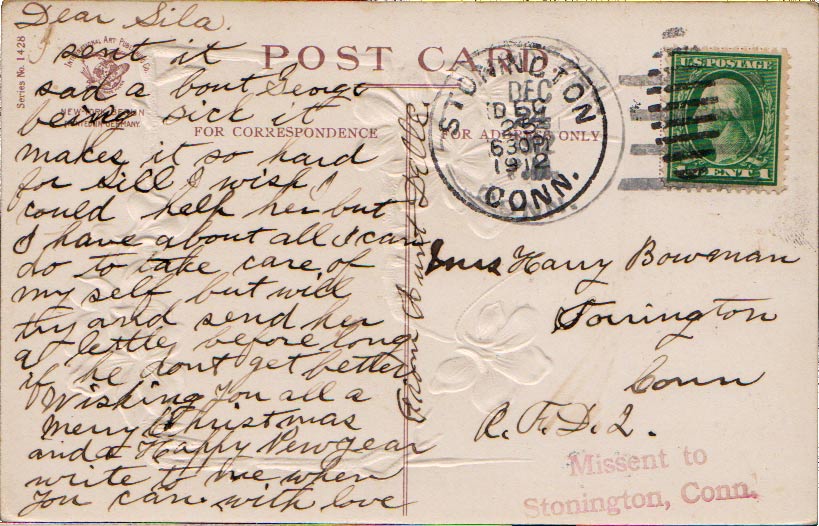 Dear Sila.
I sent it
sad a bout George
being sick it
makes it so hard
for Sill I wish I
could help her but
I have about all I can
do to take care of
my self but will
try and send her
a letter before long
if he dont get better
Wishing you all a
Merry Christmas
and a Happy New year
write to me when
you can. with love
From Aunt
Series No. 1428
International Art Publishing Co.
NEW YORK BERLIN
PRINTED IN GERMANY.
POST CARD
FOR CORRESPONDENCE
FOR ADDRESS ONLY
STONINGTON
DEC
630PM
1912
CONN.
U.S. POSTAGE
CENT 1
Mrs Harry Bowman
Torrington
Conn
R. F. D. 2.
Missent to
Stonington, Conn.